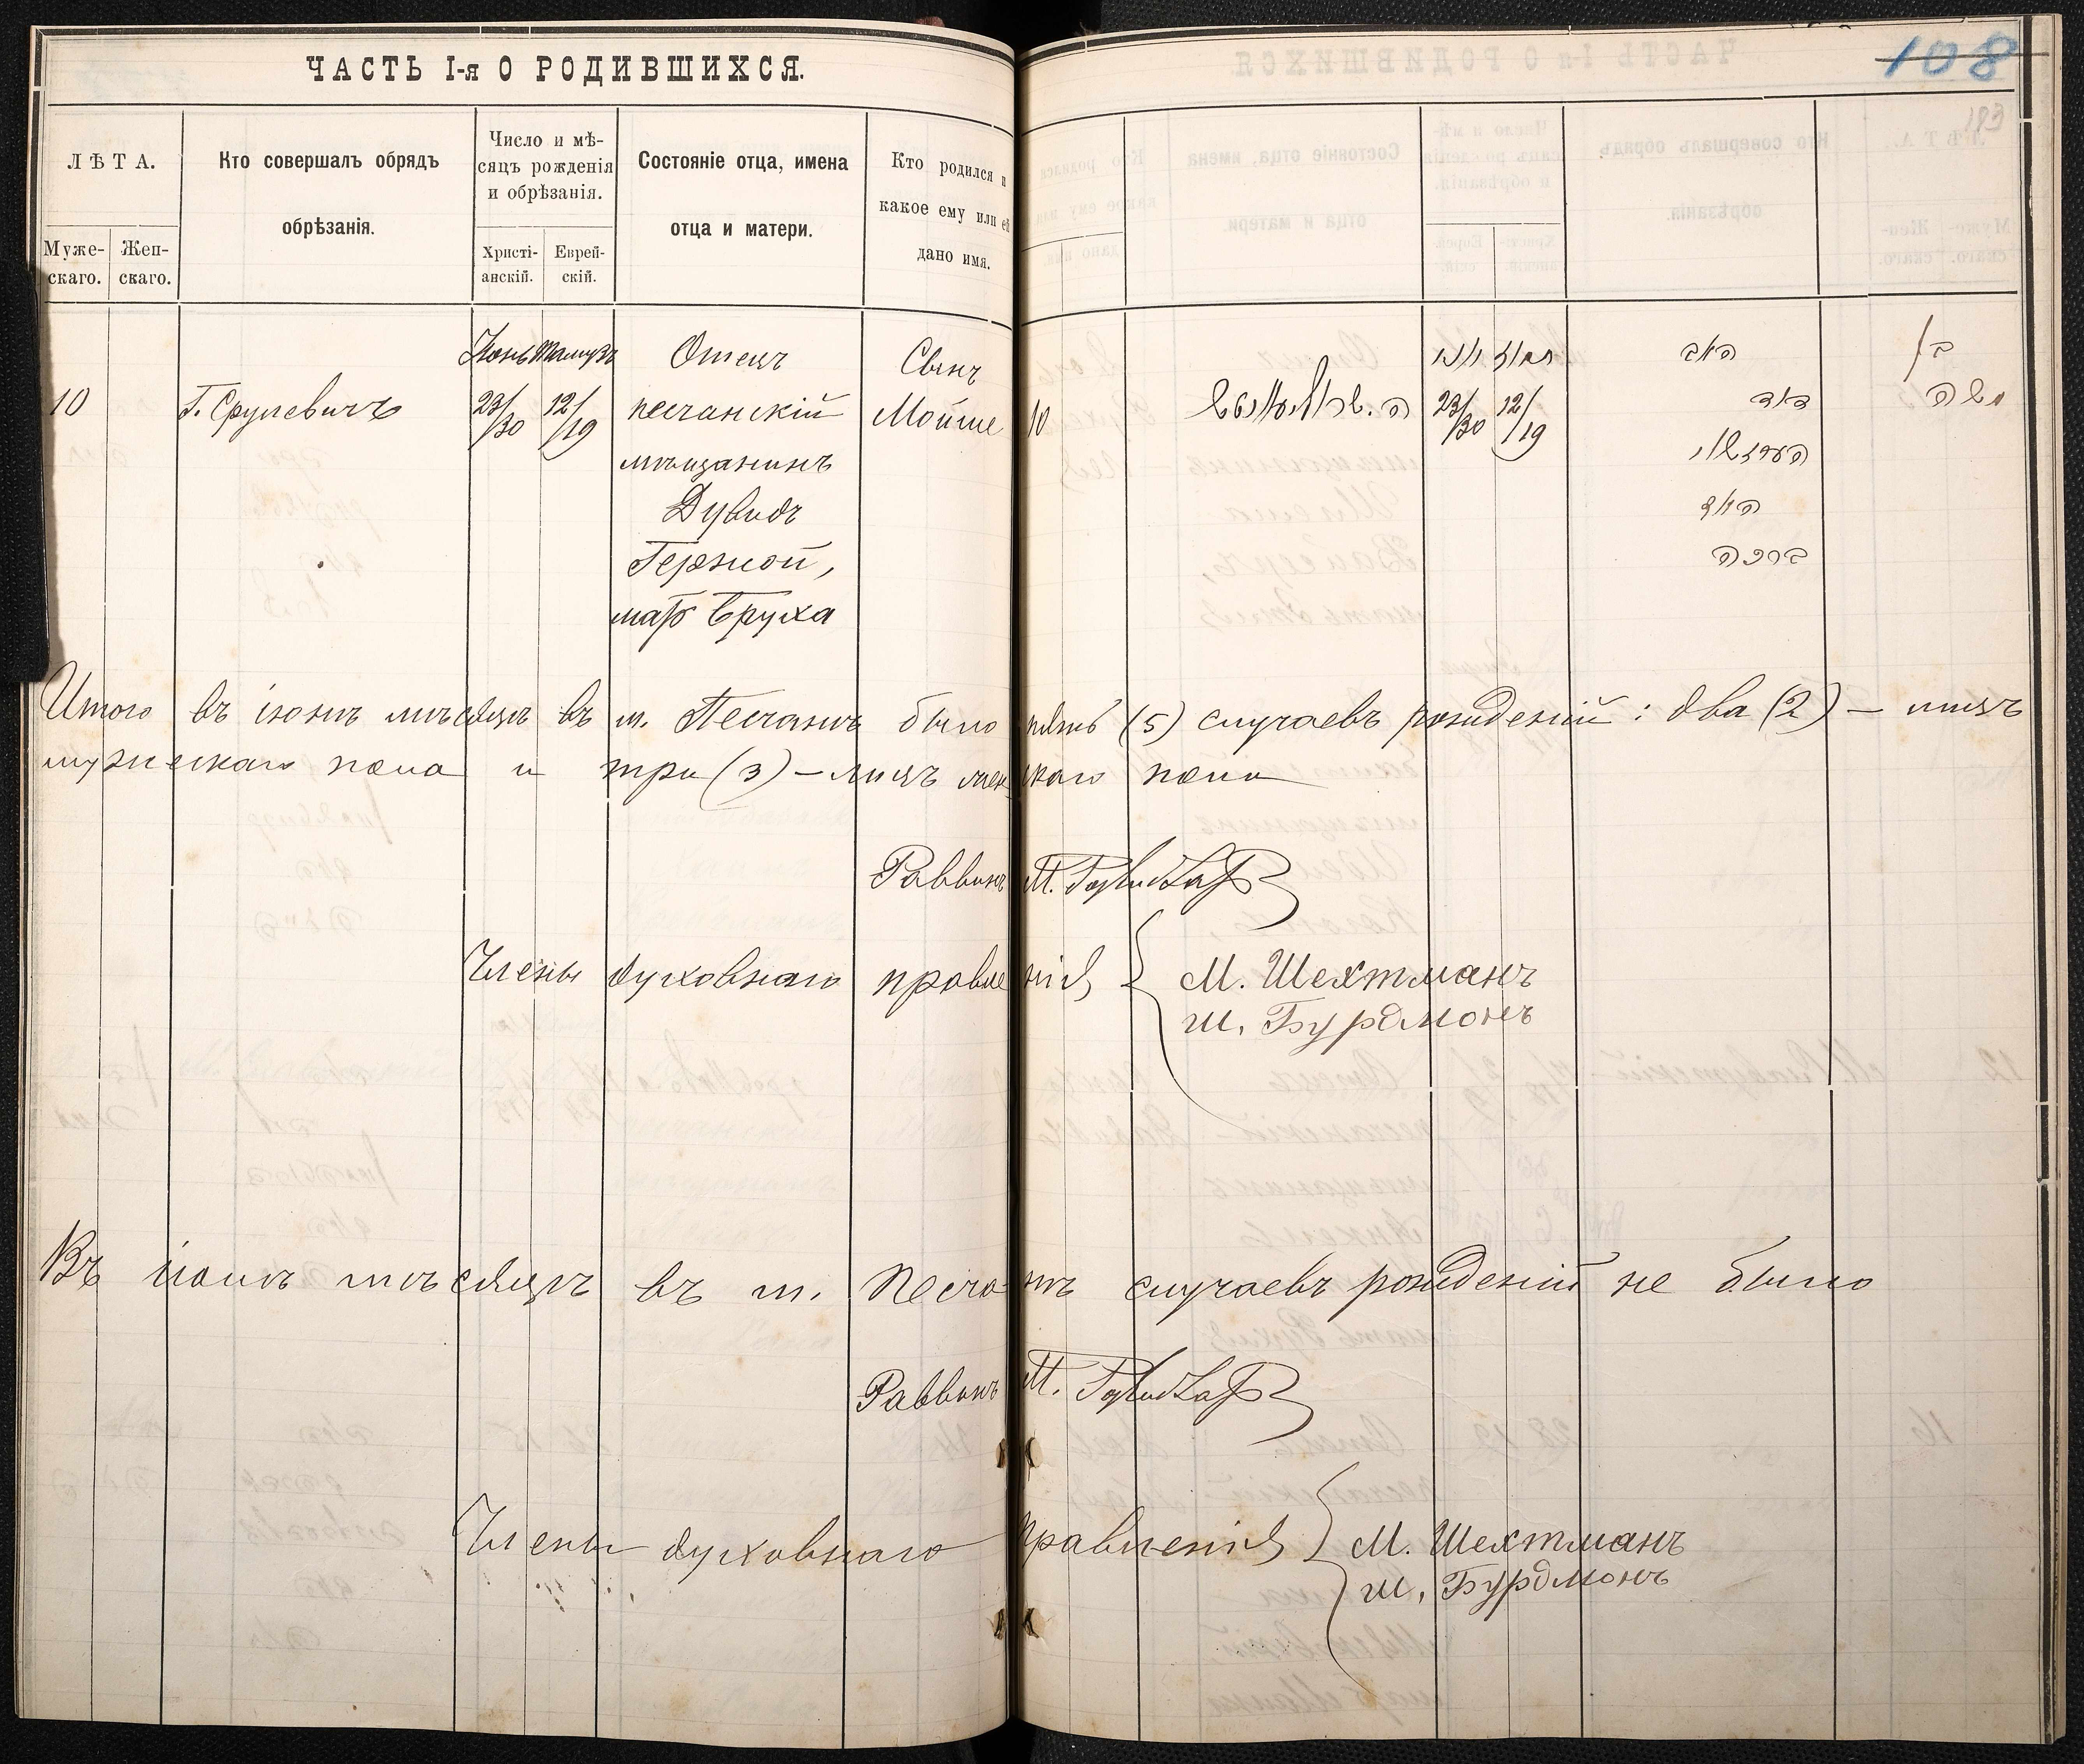 ЧАСТЬ I-я О РОДИВШИХСЯ.
108
183
ЛѢТА.
Муже-
скаго.
Жен-
скаго.
Кто совершалъ обрядъ
обрѣзанія.
Число и мѣ-
сяцъ рожденія
и обрѣзанія.
Христі-
анскій.
Еврей-
скій.
Состояніе отца, имена
отца и матери.
Кто родился и
какое ему или ей
дано имя.
10
Г. Срулевичъ
Іюнь
23/30
Тамузъ
12/19
Отецъ
песчанскій
мѣщанинъ
Дувидъ
Гержой,
мать Бруха
Сынъ
Мойше
10
יוני
23/30
תמוז
12/19
האב
דוד
האם
ברכה
בן
משה
Итого въ іюнѣ мѣсяцѣ въ м. Песчанѣ было пять (5) случаевъ рожденій: два (2) — лицъ
мужескаго пола и три (3) — лицъ женскаго пола
Раввинъ М.
Члены духовнаго правленія
М. Шехтманъ
Ш. Бурдмонъ
Въ іюлѣ мѣсяцѣ въ м. Песчанѣ случаевъ рожденій не было
Раввинъ М.
Члены духовнаго правленія
М. Шехтманъ
Ш. Бурдмонъ